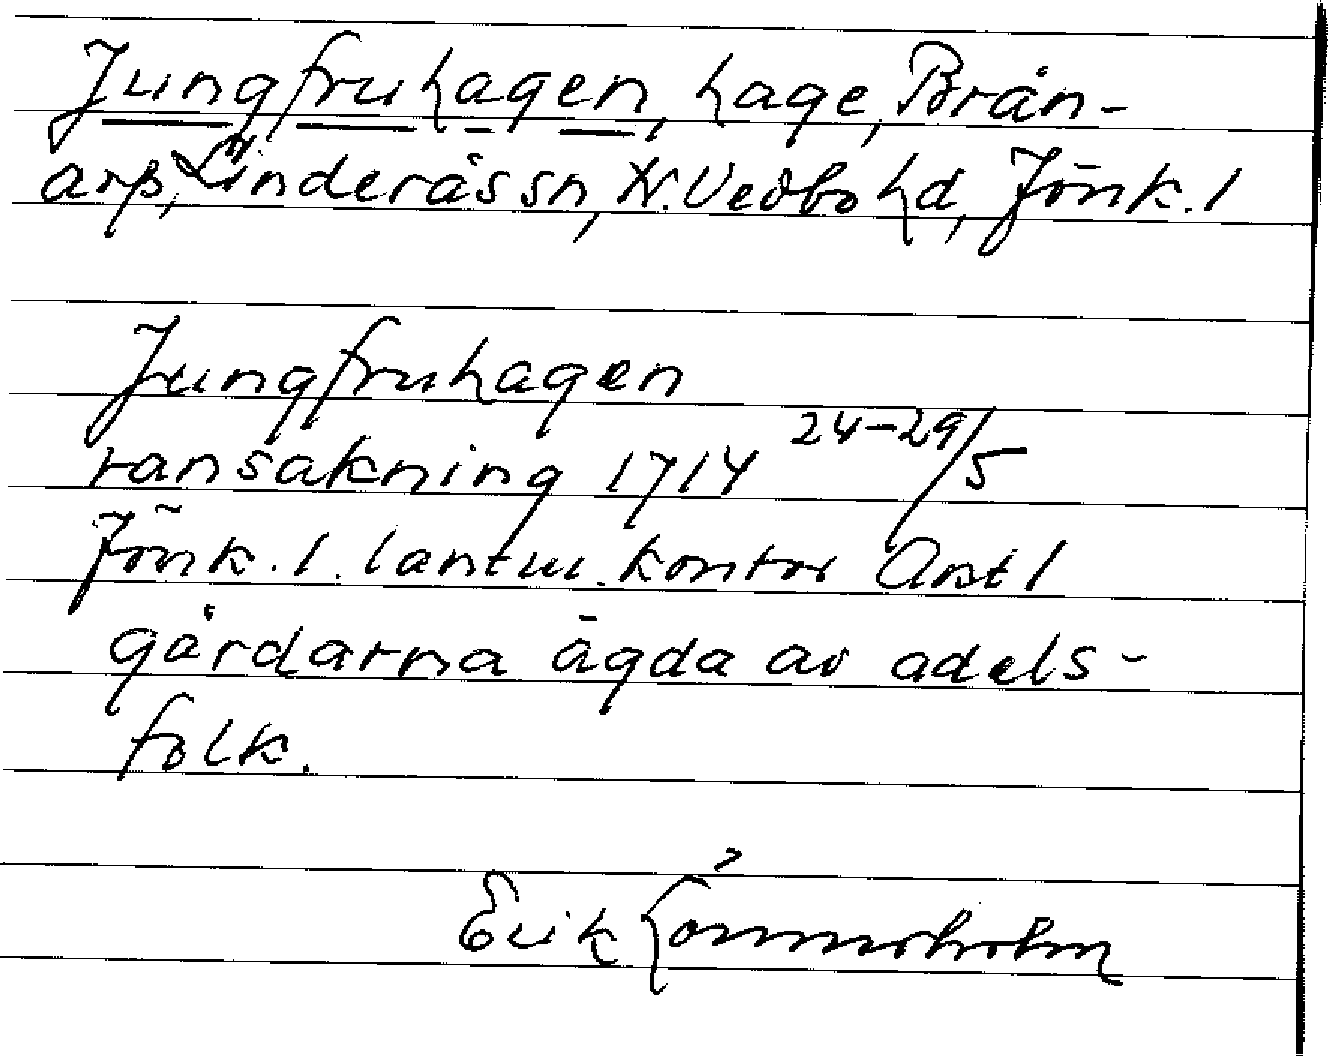 Jungfruhagen, hage, Brån-
arp, Linderås sn, N. Vedbo hd, Jönk. l
Jungfruhagen
ransakning 1714 24-29/5
Jönk. l. lantm. kontor
gårdarna ägda av adels-
folk.
Erik